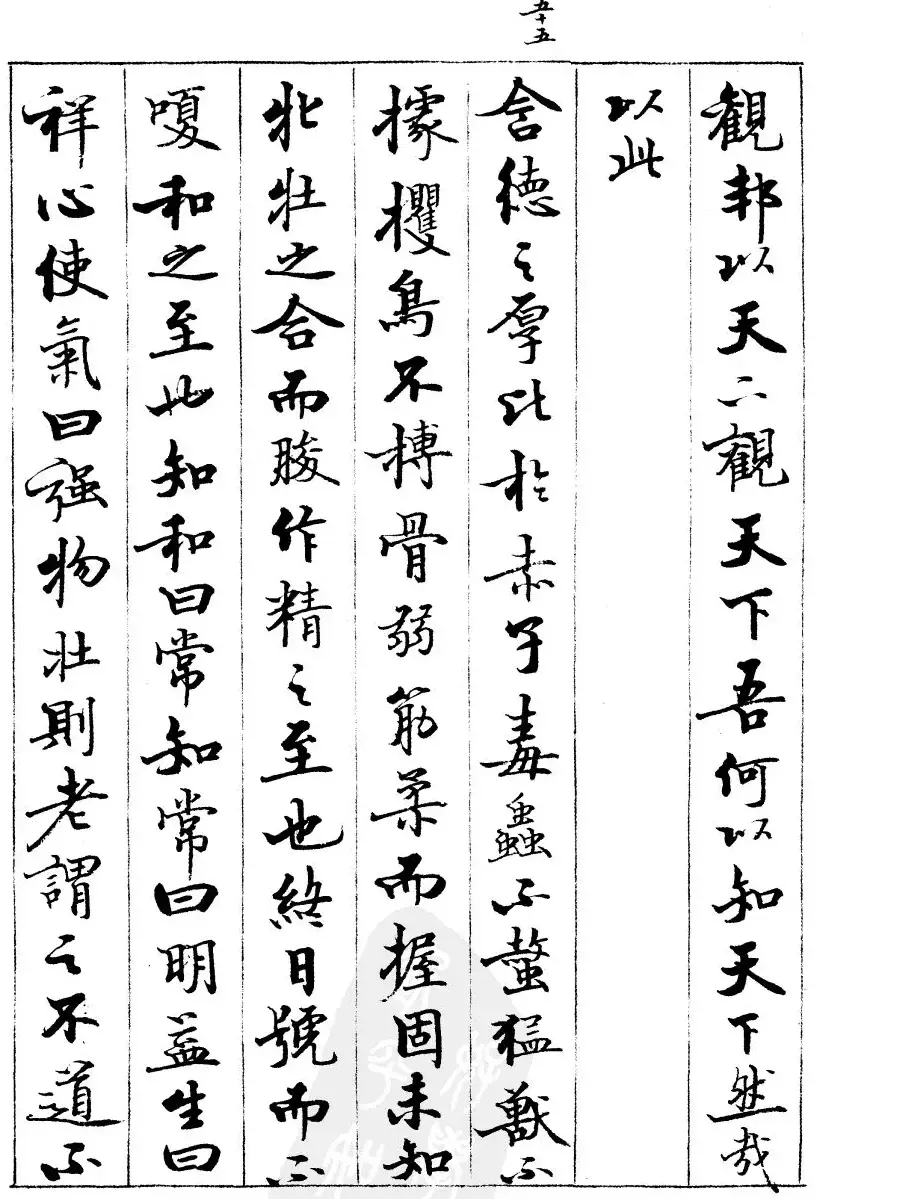 五十五
觀邦以天下觀天下吾何以知天下然哉
以此
含德之厚比於赤子毒蟲不螫猛獸不
據攫鳥不搏骨弱筋柔而握固未知
牝牡之合而朘作精之至也終日號而不
嗄和之至也知和曰常知常曰明益生曰
祥心使氣曰强物壯則老謂之不道不